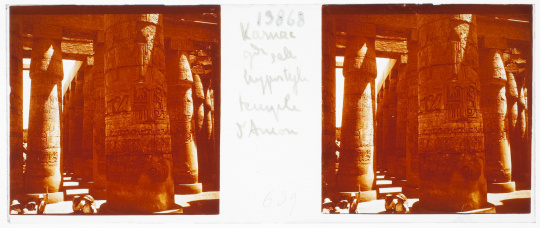 13868
Karnac
gde sale
hypostyle
temple
d'Amon
689